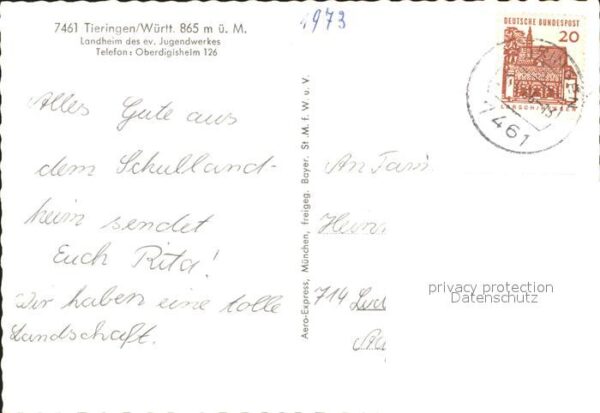 7461 Tieringen/Württ. 865 m ü. M.
Landheim des ev. Jugendwerkes
Telefon: Oberdigisheim 126
1973
DEUTSCHE BUNDESPOST
20
7461
Alles Gute aus
dem Schulland-
heim sendet
Euch Rita!
Wir haben eine tolle
Landschaft.
Aero-Express, München, freigeg. Bayer. St. M. f. W. u. V.
An Fam
Hein
714
privacy protection
Datenschutz